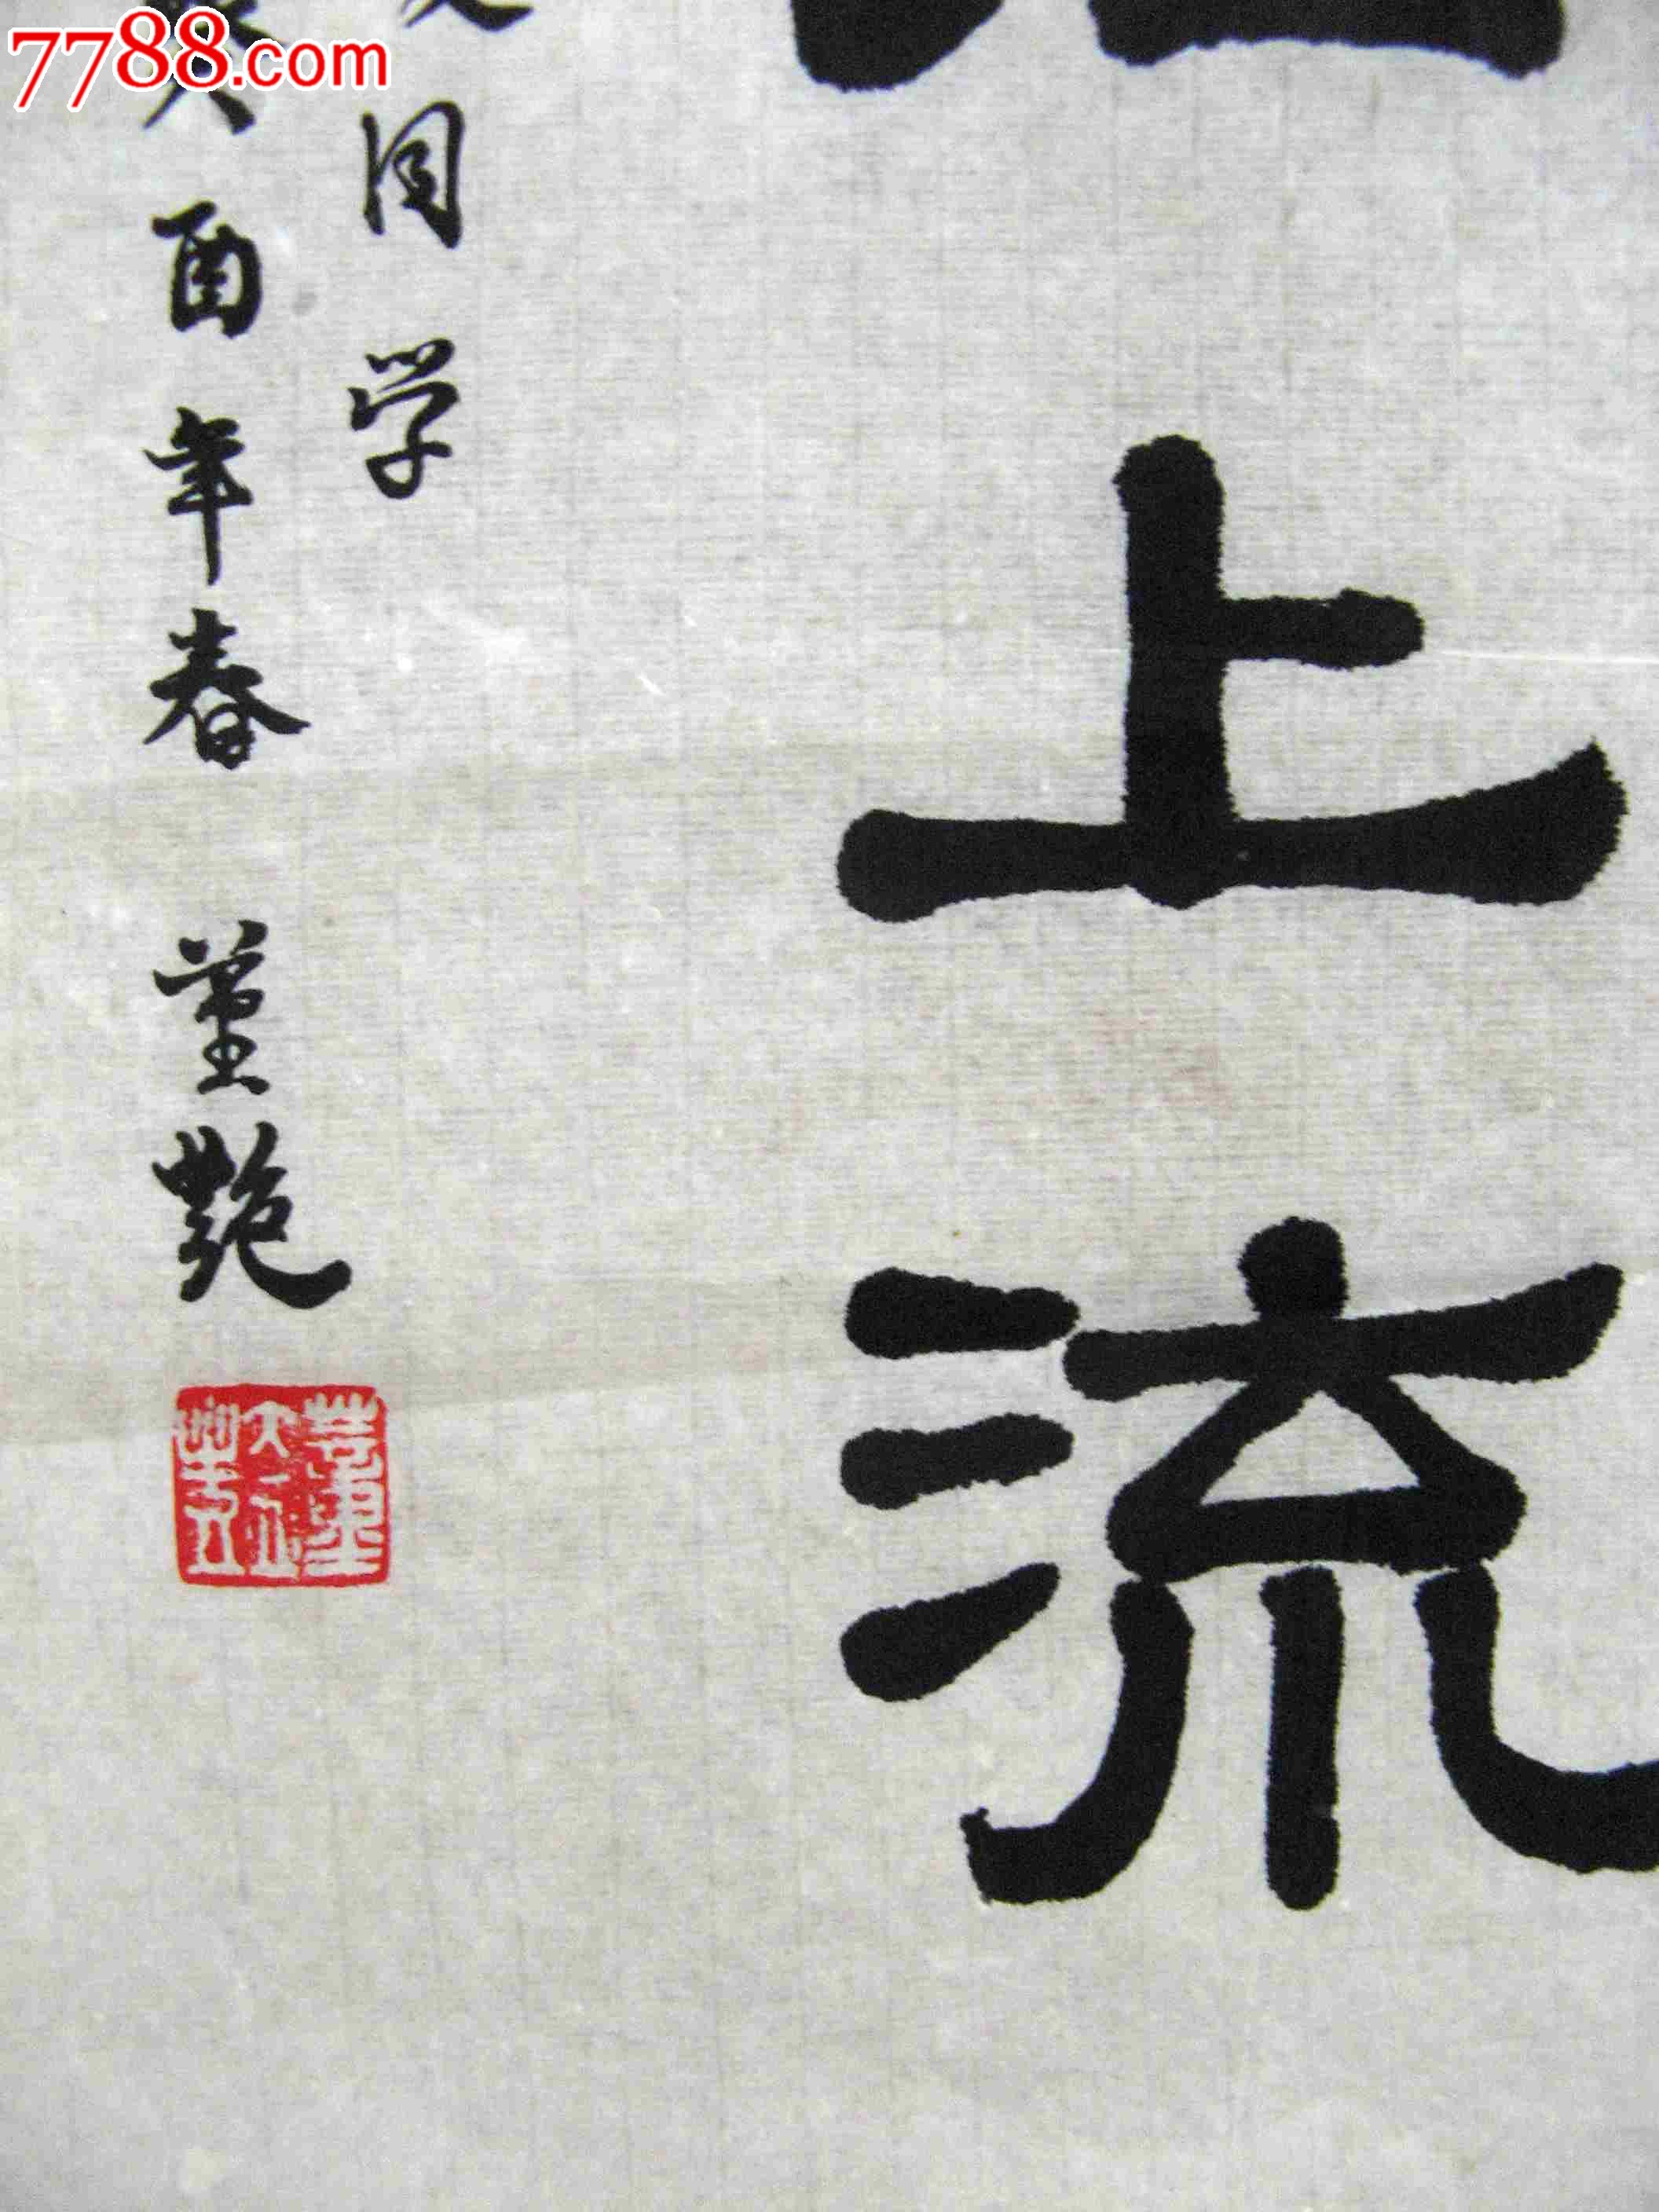 7788.com
上流
同学
癸酉年春 董艳